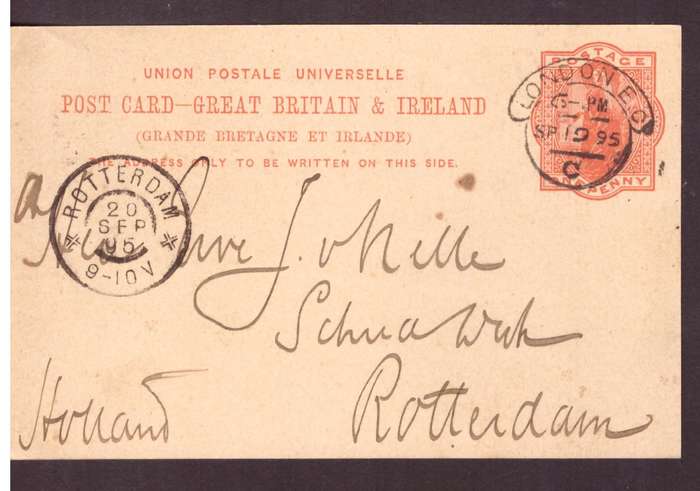 UNION POSTALE UNIVERSELLE
POST CARD—GREAT BRITAIN & IRELAND
(GRANDE BRETAGNE ET IRLANDE)
THE ADDRESS ONLY TO BE WRITTEN ON THIS SIDE.
POSTAGE
ONE PENNY
LONDON E.C
PM
SP 19 95
C
ROTTERDAM
20
SEP
95
9-10 V
J.
Rotterdam
Holland